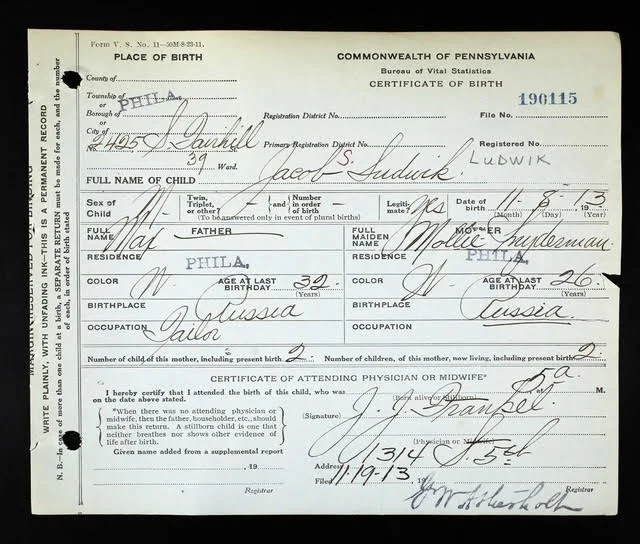 Form V. S. No. 11—50M-8-23-11.
PLACE OF BIRTH
County of
Township of
or
Borough of
or
City of
PHILA.
No. 2425 S. Fairhill
39 Ward.
COMMONWEALTH OF PENNSYLVANIA
Bureau of Vital Statistics
CERTIFICATE OF BIRTH
Registration District No.
File No.
190115
Primary Registration District No.
Registered No.
FULL NAME OF CHILD Jacob S. Ludwik.
LUDWIK
Sex of Child M— Twin, Triplet, or other? — and Number in order — Legitimate? Yes Date of birth 11- 8- 1913
(To be answered only in event of plural births) (Month) (Day) (Year)
FATHER
FULL NAME Max
RESIDENCE PHILA.
COLOR W. AGE AT LAST BIRTHDAY 32
(Years)
BIRTHPLACE Russia
OCCUPATION Tailor
MOTHER
FULL MAIDEN NAME Mollie Snyderman.
RESIDENCE PHILA.
COLOR W. AGE AT LAST BIRTHDAY 26
(Years)
BIRTHPLACE Russia.
OCCUPATION
Number of child of this mother, including present birth 2. Number of children, of this mother, now living, including present birth 2.
CERTIFICATE OF ATTENDING PHYSICIAN OR MIDWIFE*
I hereby certify that I attended the birth of this child, who was at 5 a. M.
on the date above stated. (Born alive or stillborn)
*When there was no attending physician or
midwife, then the father, householder, etc., should
make this return. A stillborn child is one that
neither breathes nor shows other evidence of
life after birth.
(Signature) J. J. Frankel.
(Physician or Midwife)
Given name added from a supplemental report
, 19
Registrar
Address 1314 S. 5th
Filed 11-19-13, 19
Registrar
MARGIN RESERVED FOR BINDING
WRITE PLAINLY, WITH UNFADING INK—THIS IS A PERMANENT RECORD
N. B.—In case of more than one child at a birth, a SEPARATE RETURN must be made for each, and the number
of each, in order of birth stated.